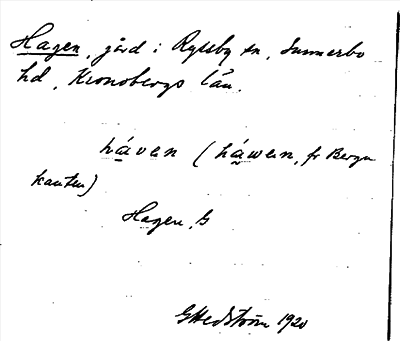 Hagen, gård i Ryssby sn, Sunnerbo
hd, Kronobergs län.
håven (håwen, fr Berga
kanten)
Hagen, G
GHedström 1920